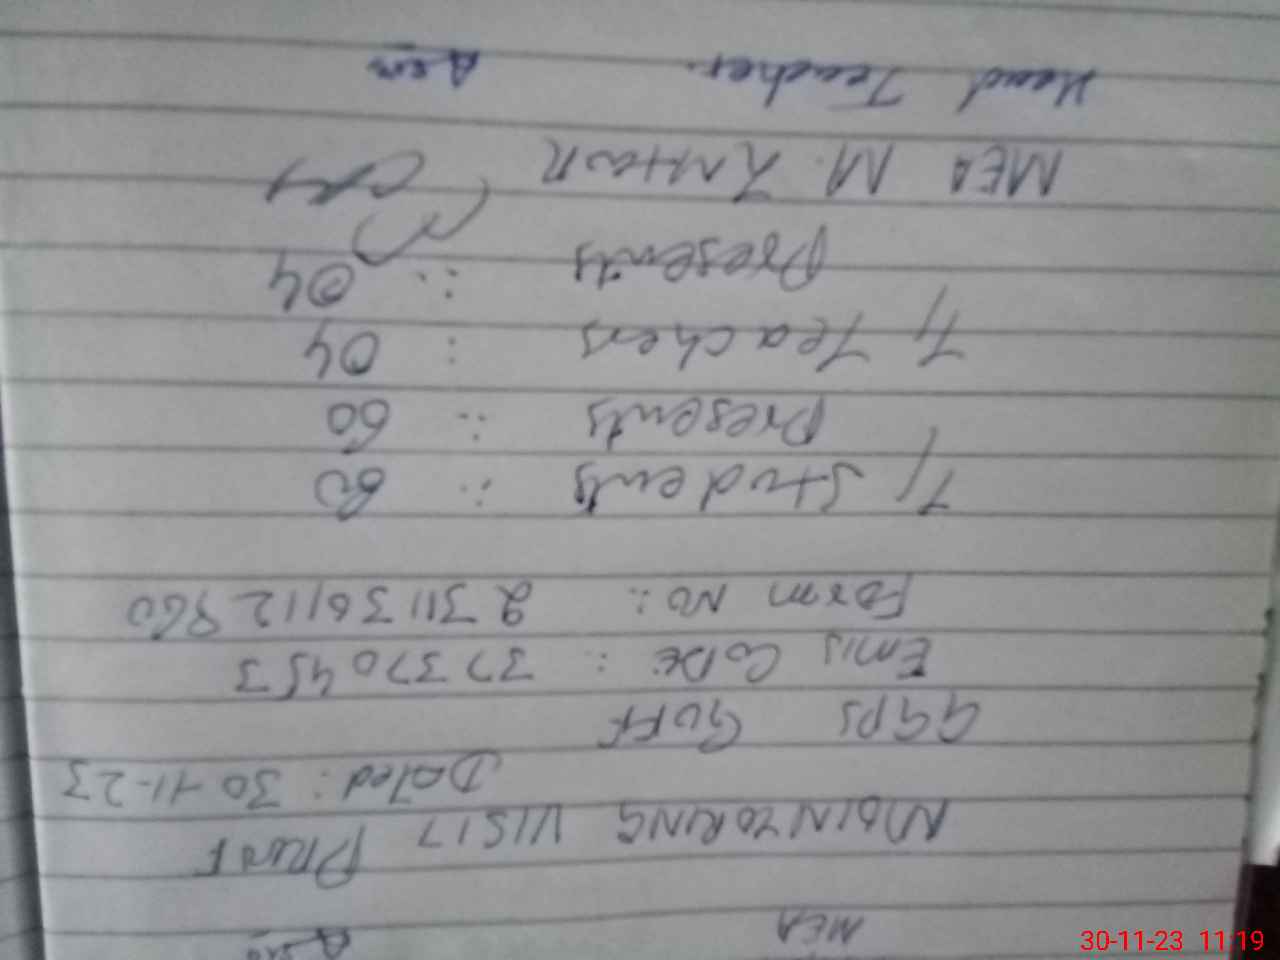 MEA
MOINTORING VISIT PROOF
Dated: 30-11-23
GGPS GUFF
Emis CODE : 37370453
Form NO:. 231136112960
T/Students :. 60
Presents :. 60
T/Teachers : 04
Presents :. 04
MEA M.
Head Teacher.
30-11-23 11:19